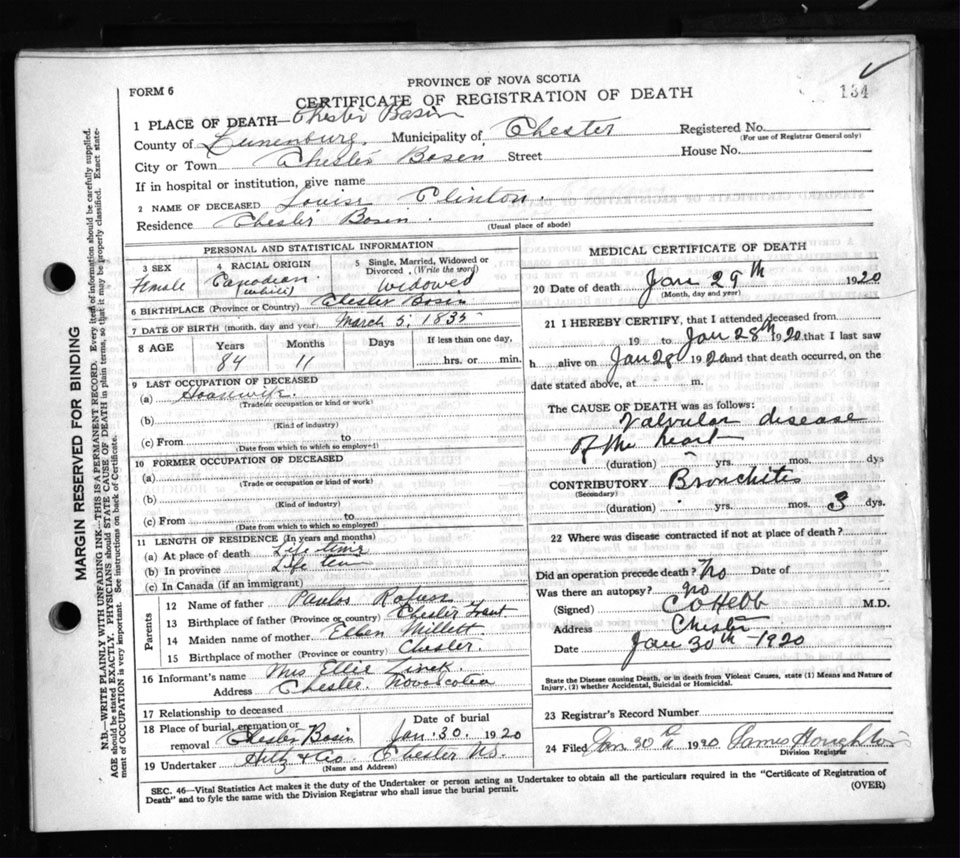 PROVINCE OF NOVA SCOTIA
FORM 6
CERTIFICATE OF REGISTRATION OF DEATH
134
1 PLACE OF DEATH—Chester Basin
County of Lunenburg, Municipality of Chester Registered No.
(For use of Registrar General only)
City or Town Chester Basin Street House No.
If in hospital or institution, give name
2 NAME OF DECEASED Louise Clinton.
Residence Chester Basin. (Usual place of abode)
PERSONAL AND STATISTICAL INFORMATION
3 SEX 4 RACIAL ORIGIN 5 Single, Married, Widowed or Divorced, (Write the word)
Female Canadian (white) Widowed
6 BIRTHPLACE (Province or Country) Chester Basin
7 DATE OF BIRTH (month, day and year) March 5, 1835
8 AGE Years Months Days If less than one day,
84 11 hrs. or min.
9 LAST OCCUPATION OF DECEASED
(a) Housewife.
(Trade or occupation or kind or work)
(b)
(Kind of industry)
(c) From to
(Date from which to which so employed)
10 FORMER OCCUPATION OF DECEASED
(a)
(Trade or occupation or kind of work)
(b)
(Kind of industry)
(c) From to
(Date from which to which so employed)
11 LENGTH OF RESIDENCE (In years and months)
(a) At place of death Life time
(b) In province Life time
(c) In Canada (if an immigrant)
Parents
12 Name of father Paulos Rafuse
13 Birthplace of father (Province or country) Chester
14 Maiden name of mother. Ellen Millett
15 Birthplace of mother (Province or country) Chester.
16 Informant's name Mrs Ellie Zinck.
Address Chester. Nova Scotia
17 Relationship to deceased
18 Place of burial, cremation or removal Chester Basin Date of burial Jan. 30. 1920
19 Undertaker Hilz & Co Chester NS.
(Name and Address)
MEDICAL CERTIFICATE OF DEATH
20 Date of death Jan 29th 1920
(Month, day and year)
21 I HEREBY CERTIFY, that I attended deceased from
19 to Jan 28th 1920 that I last saw
h alive on Jan 28 1920 and that death occurred, on the
date stated above, at m.
The CAUSE OF DEATH was as follows:
Valvular disease
of the heart
(duration) yrs. mos. dys
CONTRIBUTORY Bronchitis
(Secondary)
(duration) yrs. mos. 3 dys.
22 Where was disease contracted if not at place of death?
Did an operation precede death? No Date of
Was there an autopsy? No
(Signed) C O Hebb M.D.
Address Chester
Date Jan 30th 1920
State the Disease causing Death, or in death from Violent Causes, state (1) Means and Nature of
Injury, (2) whether Accidental, Suicidal or Homicidal.
23 Registrar's Record Number
24 Filed Jan 30th 1920 James Houghton
Division Registrar
SEC. 46—Vital Statistics Act makes it the duty of the Undertaker or person acting as Undertaker to obtain all the particulars required in the "Certificate of Registration of
Death" and to fyle the same with the Division Registrar who shall issue the burial permit.
(OVER)
MARGIN RESERVED FOR BINDING
N.B.—WRITE PLAINLY WITH UNFADING INK—THIS IS A PERMANENT RECORD. Every item of information should be carefully supplied.
AGE should be stated EXACTLY. PHYSICIANS should STATE CAUSE OF DEATH in plain terms, so that it may be properly classified. Exact state-
ment of OCCUPATION is very important. See instructions on back of Certificate.